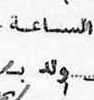 الساعة
ولد بـ